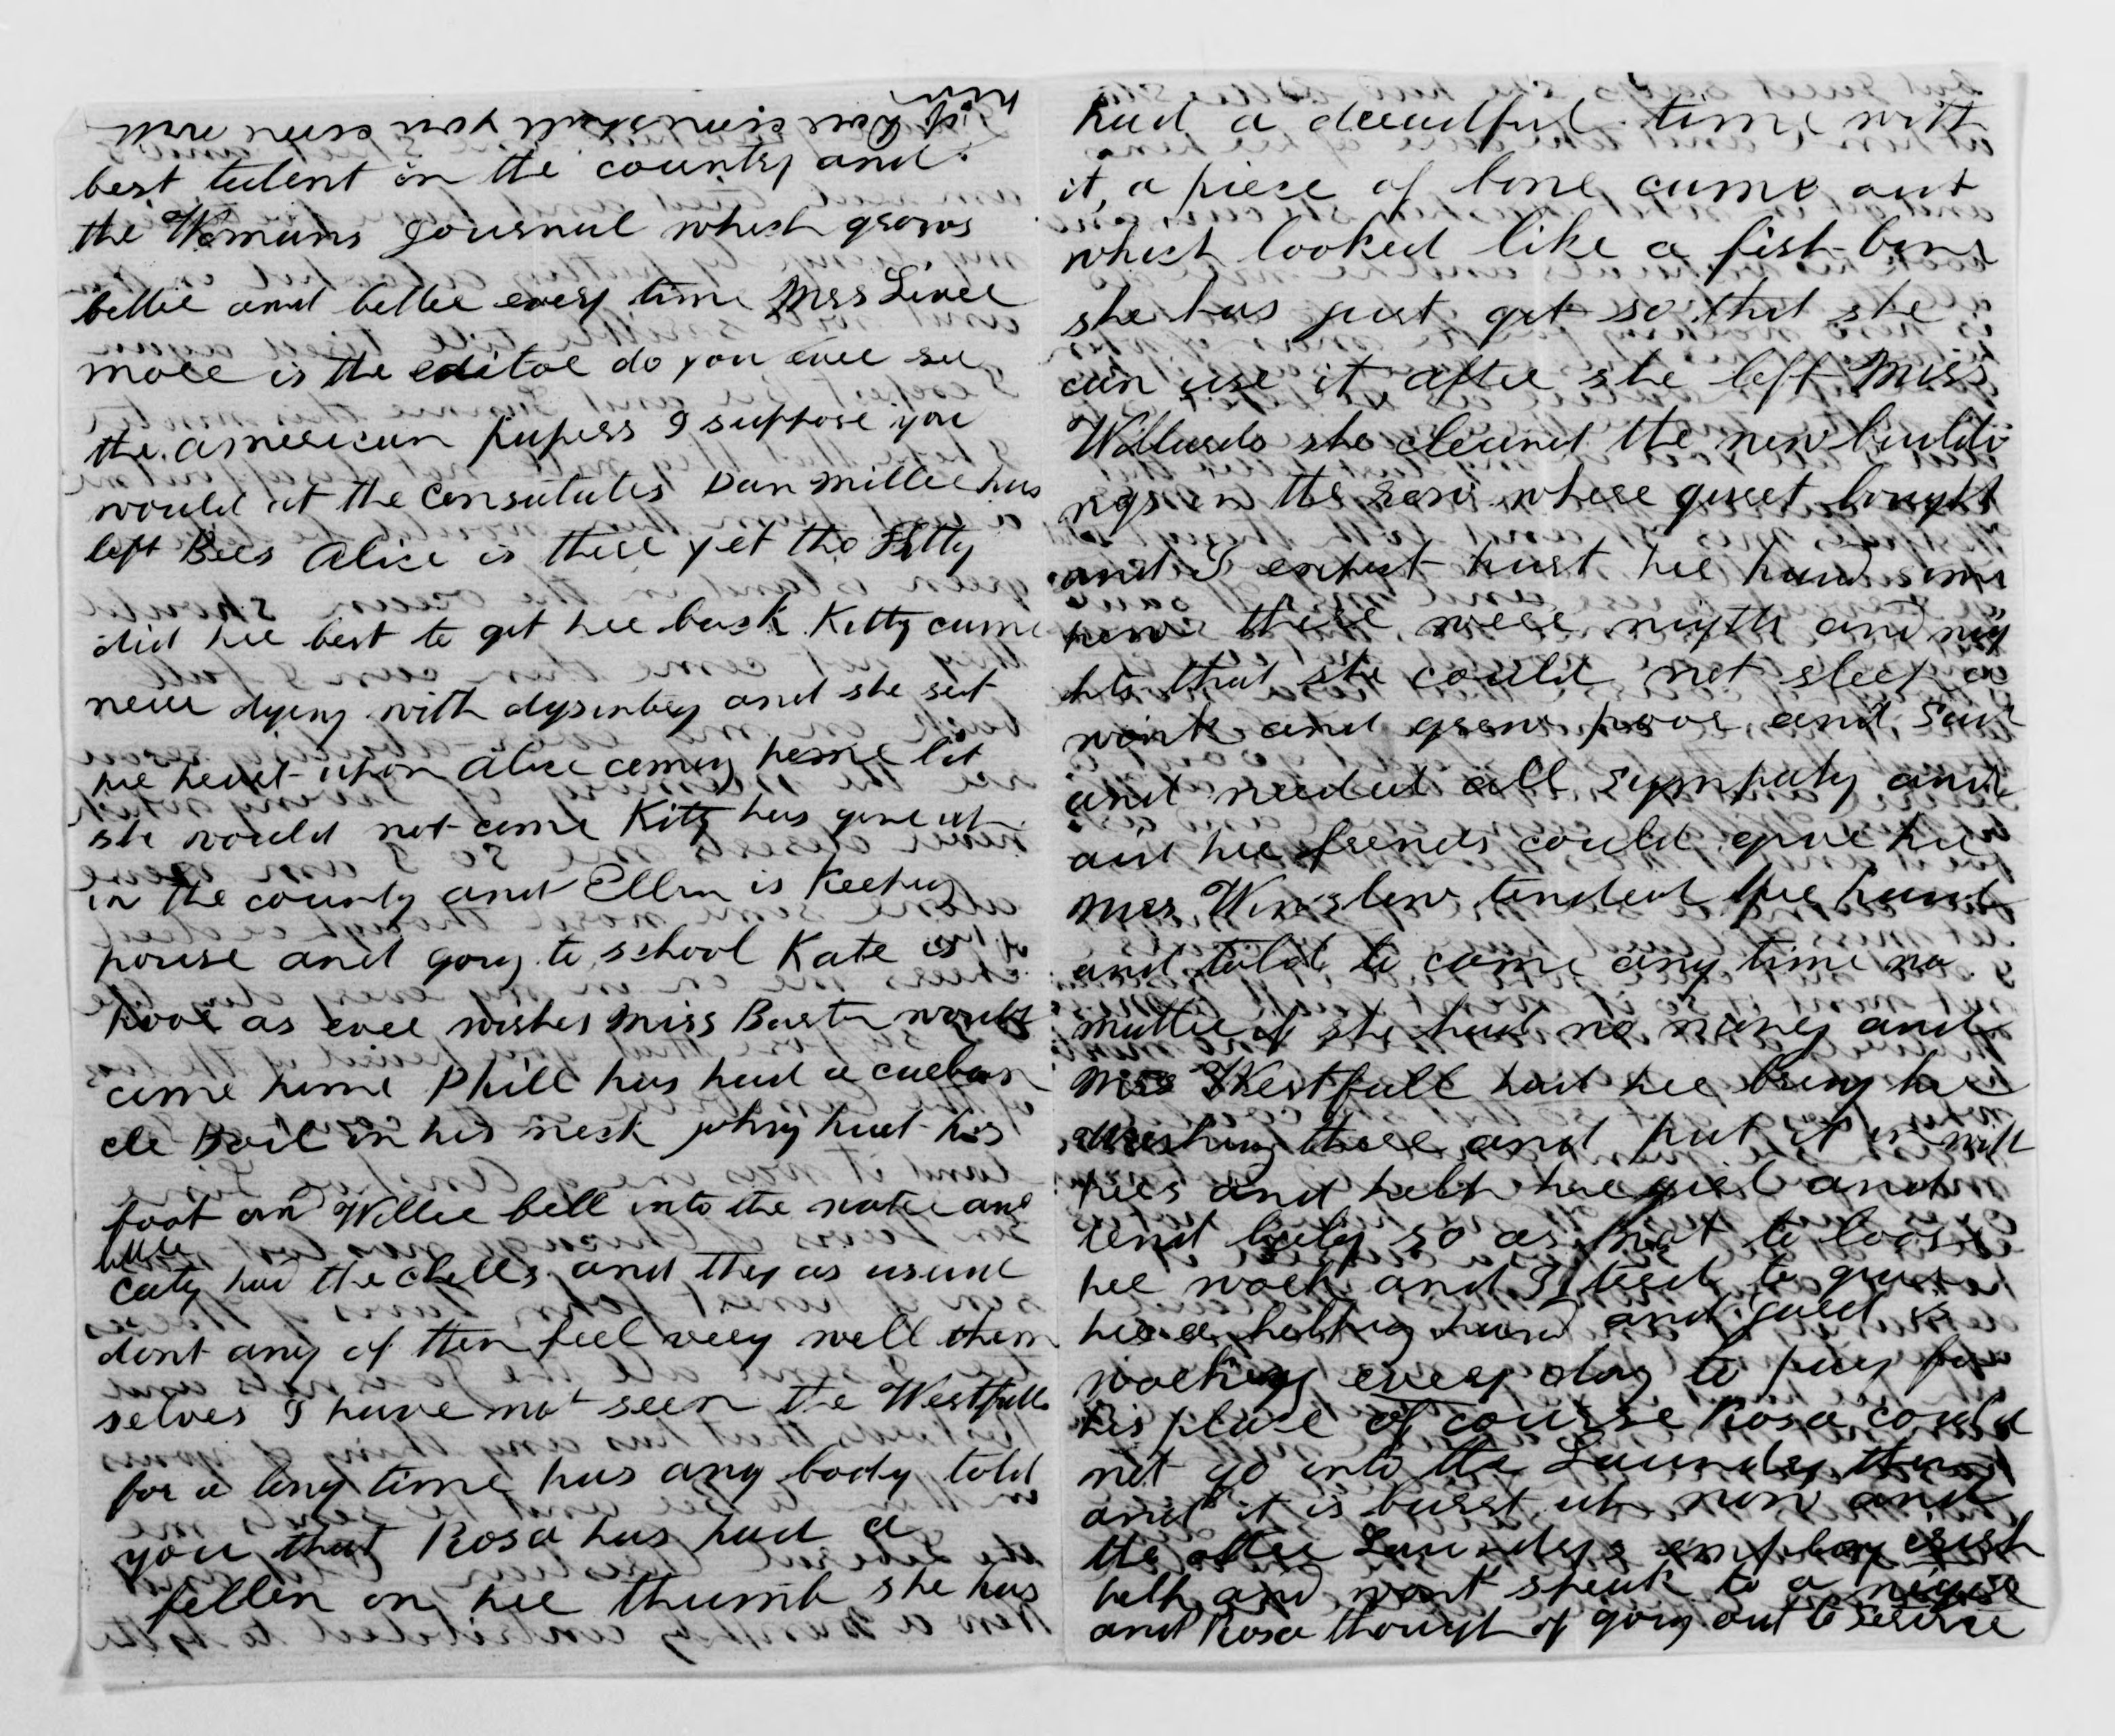 best talent in the country and
the Womans Journal which grows
better and better every time Mrs Liver
more is the editor do you ever see
the american papers I suppose you
would at the consulates Dan Miller has
left Bees Alice is there yet tho Kitty
did her best to get her back Kitty came
near dying with dysintery and she set
her heart upon Alice coming home bit
she would not come Kitty has gone up
in the country and Ellen is Keeping
house and going to school Kate is
poor as ever wishes Miss Barton would
come home Phill has had a carbun
cle Boil on his neck johny hurt his
foot and Willie fell into the water and
little
Caty had the chills and they as usual
dont any of them feel very well them
selves I have not seen the Westfalls
for a long time has any body told
you that Rosa has had a
fellen on her thumb she has
had a dreadful time with
it, a piece of bone came out
which looked like a fish-bone
she has just got so that she
can use it after she left Miss
Willards she cleand the new buildi
ngs in the row where guset bought
and I expect hurt her hand some
how there were nigths and nig
hts that she could not sleep a
wink and grew poor and
and needed all sympathy and
aid her frends could give her
Mrs Winslow tended her hand
and told to come any time no
matter if she had no money and
Mrs Westfall had her bring her
washing there and put it in with
hers and help her girl and
tend baby so as not to loose
her work and I tried to give
her a helping hand and guset is
working every day to pay for
his place of course Rosa could
not go into the Laundry then
and it is burst up now and
the other Laundrys employ irish
help and wont speak to a
and Rosa thought of going out to service